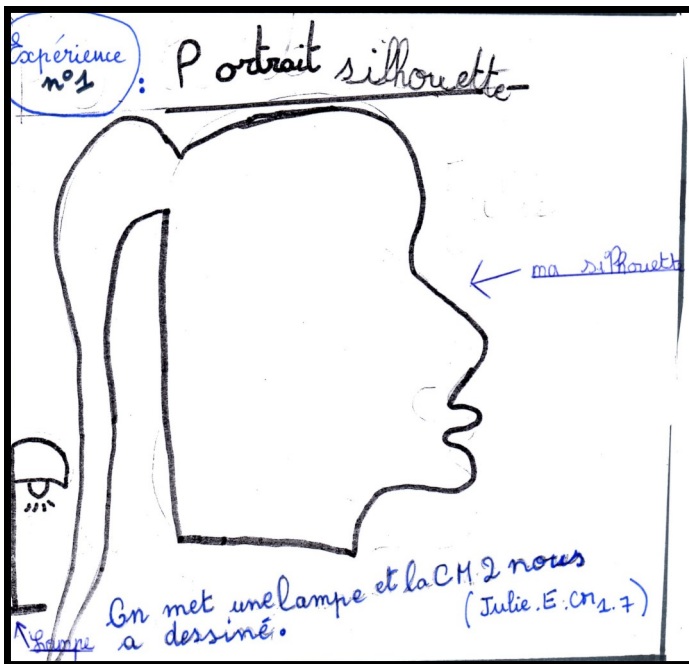 Expérience
n°1 : Portrait silhouette
ma silhouette
On met une lampe et la CM2 nous
a dessiné.
(Julie.E.CM1.7)
Lampe